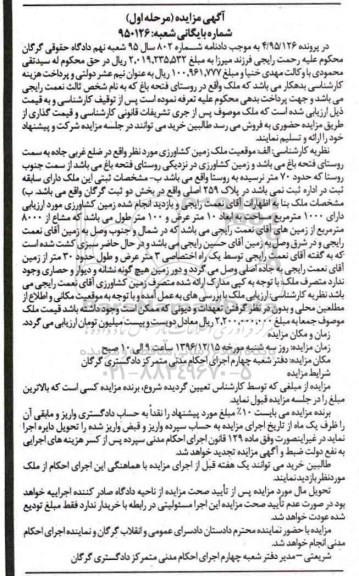 آگهی مزایده (مرحله اول)
شماره بایگانی شعبه: ۹۵۰۱۲۶
در پرونده ۴/۹۵/۱۲۶ به موجب دادنامه شماره ۸۰۲ سال ۹۵ شعبه نهم دادگاه حقوقی گرگان
محکوم علیه رحمت رایجی فرزند میرزا به مبلغ ۲,۰۱۹,۲۳۵,۵۳۲ ریال در حق محکوم له سیدتقی
محمودی با وکالت مهدی خنیا و مبلغ ۱۰۰,۹۶۱,۷۷۷ ریال به عنوان نیم عشر دولتی و پرداخت هزینه
کارشناسی بدهکار می باشد که ملک واقع در روستای فتحه باغ که به نام شخص ثالث نعمت رایجی
می باشد و جهت پرداخت بدهی محکوم علیه تعرفه نموده است پس از توقیف کارشناسی و به قیمت
ذیل ارزیابی شده است که ملک موصوف پس از جری تشریفات قانونی کارشناسی و قیمت گذاری از
طریق مزایده حضوری به فروش می رسد طالبین خرید می توانند در جلسه مزایده شرکت و پیشنهاد
خود را ارائه و تسلیم نمایند.
نظریه کارشناسی: الف- موقعیت ملک زمین کشاورزی مورد نظر واقع در ضلع غربی جاده به سمت
روستای فتحه باغ می باشد و زمین کشاورزی در نزدیکی روستای فتحه باغ می باشد از سمت جنوب
روستا که حدود ۷۰ متر نرسیده به روستا واقع می باشد ب- مشخصات ثبتی این ملک دارای سابقه
ثبت در اداره ثبت نمی باشد در پلاک ۲۵۹ اصلی واقع در بخش دو ثبت گرگان واقع می باشد. پ)
مشخصات ملک بنا به اظهارات آقای نعمت رایجی و بازدید انجام شده زمین کشاورزی مورد ارزیابی
دارای ۱۰۰۰ مترمربع مساحت به ابعاد ۱۰ متر عرض و ۱۰۰ متر طول می باشد که مشاع از ۸۰۰۰
مترمربع از زمین های آقای نعمت رایجی می باشد که در شمال و جنوب وصل به زمین آقای نعمت
رایجی و در شرق وصل به زمین آقای حسین رایجی می باشد و در حال حاضر سبزی کشت شده است
که به گفته آقای نعمت رایجی توسط یک راه اختصاصی ۳ متر عرض و طول حدود ۳۰ متر از زمین
آقای نعمت رایجی به جاده اصلی وصل می گردد و دور زمین هیچ گونه نشانه و دیوار و حصاری وجود
ندارد متصرف ملک: با توجه به کپی مدارک ارائه شده متصرف زمین کشاورزی آقای نعمت رایجی می
باشد نظریه کارشناسی: ارزیابی ملک با بررسی های به عمل آمده و با توجه به موقعیت مکانی و اطلاع از
مطلعین محلی و بدون در نظر گرفتن تعهدات و دیونی که ممکن است وجود داشته باشد قیمت ملک
موصوف جمعا به مبلغ ۲,۲۰۰,۰۰۰,۰۰۰ ریال معادل دویست و بیست میلیون تومان ارزیابی می گردد.
زمان و مکان مزایده
زمان مزایده: روز سه شنبه مورخه ۱۳۹۶/۱۲/۱۵ ساعت ۹ الی ۱۰ صبح
مکان مزایده: دفتر شعبه چهارم اجرای احکام مدنی متمرکز دادگستری گرگان
شرایط مزایده
مزایده از مبلغی که توسط کارشناس تعیین گردیده شروع، برنده مزایده کسی است که بالاترین
مبلغ را در جلسه مزایده قبول نماید.
برنده مزایده می بایست ۱۰٪ مبلغ مورد پیشنهاد را نقداً به حساب دادگستری واریز و مابقی آن
را ظرف یک ماه از تاریخ اجرای مزایده به حساب سپرده واریز و قبض واریز شده را تحویل دایره اجرا
نماید در غیراینصورت وفق ماده ۱۲۹ قانون اجرای احکام مدنی سپرده پس از کسر هزینه های اجرایی
به نفع دولت ضبط و آگهی مزایده تجدید خواهد شد.
طالبین خرید می توانند یک هفته قبل از اجرای مزایده با هماهنگی این اجرای احکام از ملک
موردنظر بازدید نمایند.
تحویل مال مورد مزایده پس از تأیید صحت مزایده از ناحیه دادگاه صادر کننده اجراییه خواهد
بود در صورت عدم تأیید صحت مزایده این اجرا مسئولیتی در رابطه با خریدار ندارد فقط مبلغ تودیع
شده عودت خواهد شد.
مزایده با حضور نماینده محترم دادستان دادسرای عمومی و انقلاب گرگان و نماینده اجرای احکام
مدنی انجام خواهد شد.
شریعتی – مدیر دفتر شعبه چهارم اجرای احکام مدنی متمرکز دادگستری گرگان